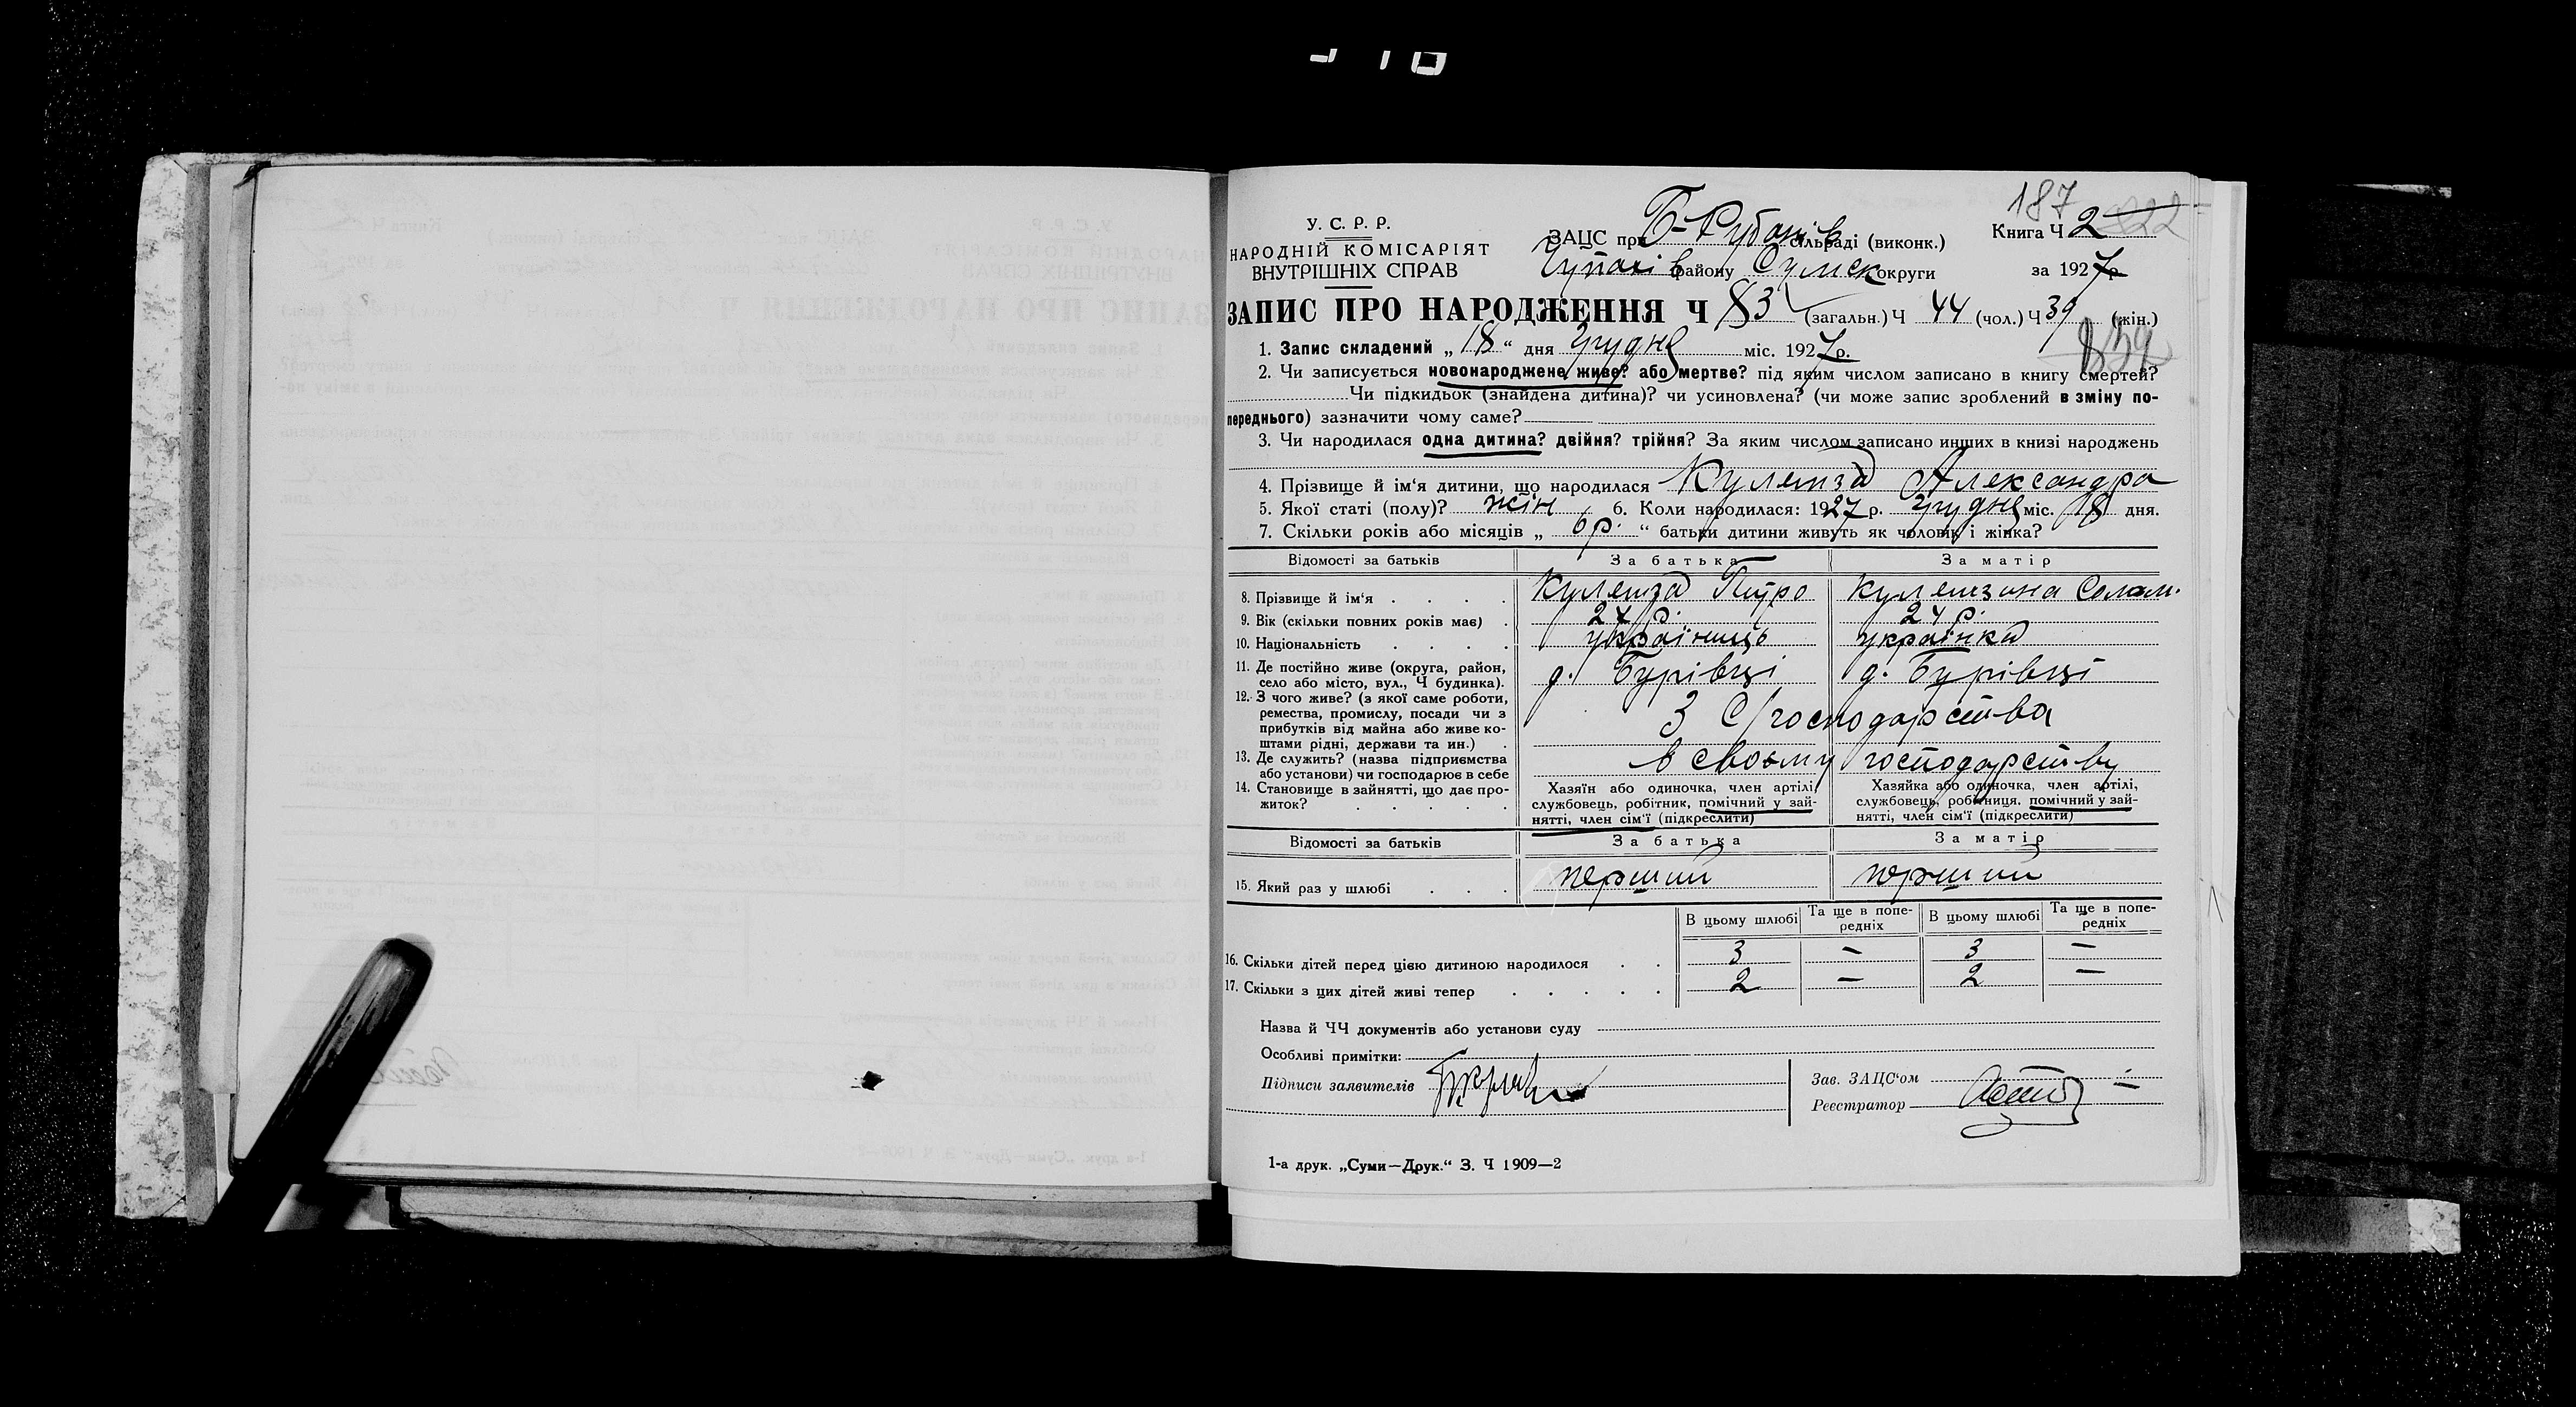 187
У. С. Р. Р.
НАРОДНІЙ КОМІСАРІЯТ
ВНУТРІШНІХ СПРАВ
ЗАЦС при Б-Рубанів сільраді (виконк.)
Чупахів району Сумск округи
Книга Ч 2
822
за 1927 р.
ЗАПИС ПРО НАРОДЖЕННЯ Ч 83 (загальн.) Ч 44 (чол.) Ч 39 (жін.)
1. Запис складений „ 18 “ дня грудня міс. 1927 р.
2. Чи записується новонароджене живе? або мертве? під яким числом записано в книгу смертей?
Чи підкидьок (знайдена дитина)? чи усиновлена? (чи може запис зроблений в зміну по-
переднього) зазначити чому саме?
3. Чи народилася одна дитина? двійня? трійня? За яким числом записано инших в книзі народжень
4. Прізвище й ім‘я дитини, що народилася Александра
5. Якої статі (полу)? жін 6. Коли народилася: 1927 р. грудня міс. 18 дня.
7. Скільки років або місяців „ 6 р. “ батьки дитини живуть як чоловік і жінка?
Відомості за батьків За батька За матір
8. Прізвище й ім‘я . . . . Петро Солом.
9. Вік (скільки повних років має) . 24 р. 24 р.
10. Національність . . . . українець українка
11. Де постійно живе (округа, район,
село або місто, вул., Ч будинка). д. Бурівці д. Бурівці
12. З чого живе? (з якої саме роботи,
ремества, промислу, посади чи з
прибутків від майна або живе ко-
штами рідні, держави та ин.) . З С/господарства
13. Де служить? (назва підприємства
або установи) чи господарює в себе в своему господарству
14. Становище в зайнятті, що дає про-
житок? . . . . .
Хазяїн або одиночка, член артілі,
службовець, робітник, помічний у зай-
нятті, член сім‘ї (підкреслити)
Хазяйка або одиночка, член артілі,
службовець, робітниця, помічний у зай-
нятті, член сім‘ї (підкреслити)
Відомості за батьків За батька За матір
15. Який раз у шлюбі . . . перший перший
В цьому шлюбі Та ще в попе-
редніх В цьому шлюбі Та ще в попе-
редніх
16. Скільки дітей перед цією дитиною народилося . . 3 — 3 —
17. Скільки з цих дітей живі тепер . . . . . 2 — 2 —
Назва й ЧЧ документів або установи суду
Особливі примітки:
Підписи заявителів
Зав. ЗАЦС‘ом
Реєстратор
1-а друк. „Суми—Друк.“ З. Ч 1909—2